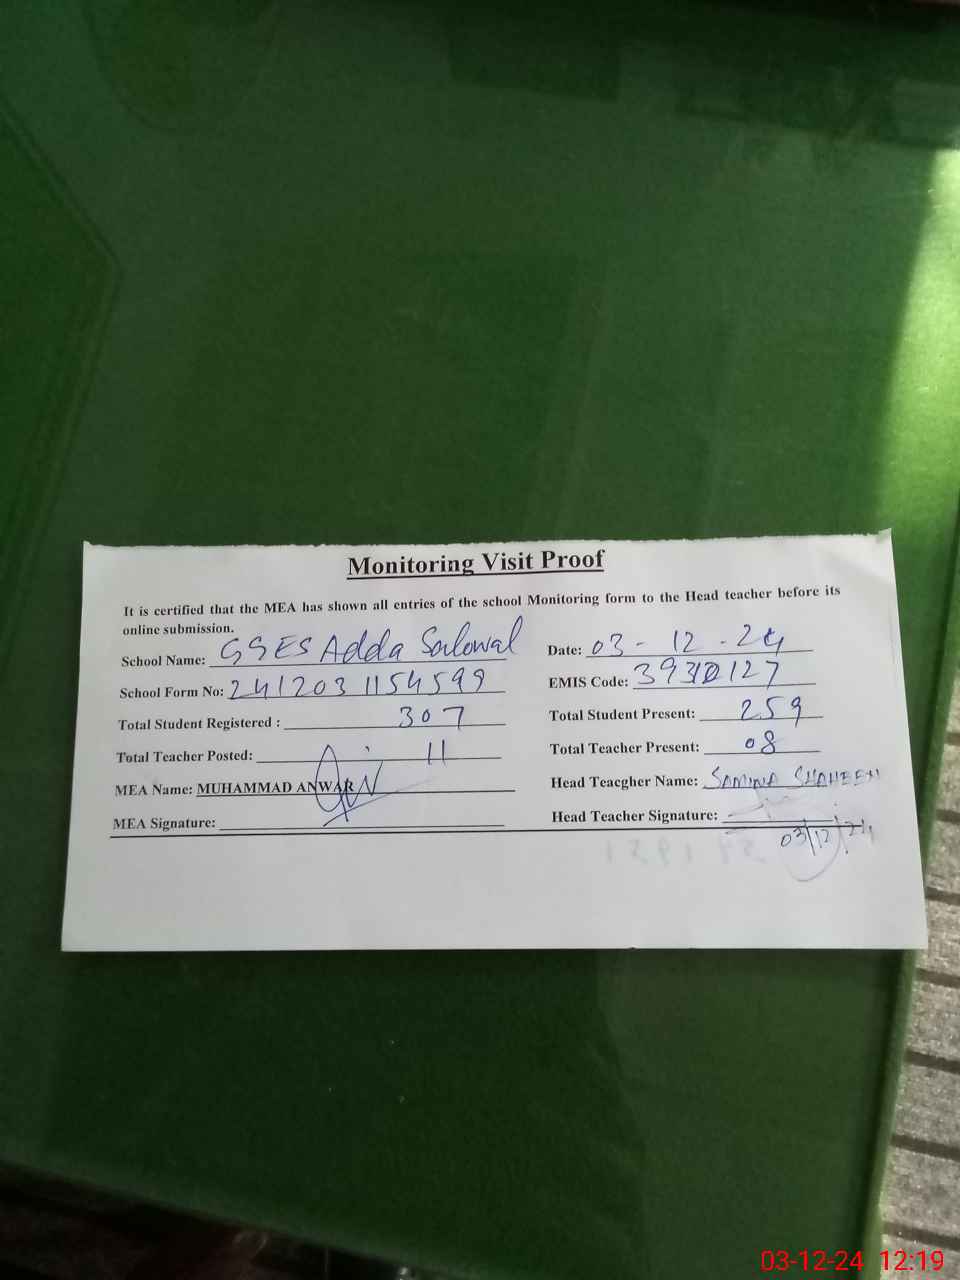 Monitoring Visit Proof
It is certified that the MEA has shown all entries of the school Monitoring form to the Head teacher before its
online submission.
School Name: GGES Adda Salowal
Date: 03 - 12 - 24
School Form No: 241203 1154599
EMIS Code:
Total Student Registered : 307
Total Student Present: 259
Total Teacher Posted: 11
Total Teacher Present: 08
MEA Name: MUHAMMAD ANWAR
Head Teacgher Name: SAMINA SHAHEEN
MEA Signature:
Head Teacher Signature:
03/12/24
03-12-24 12:19